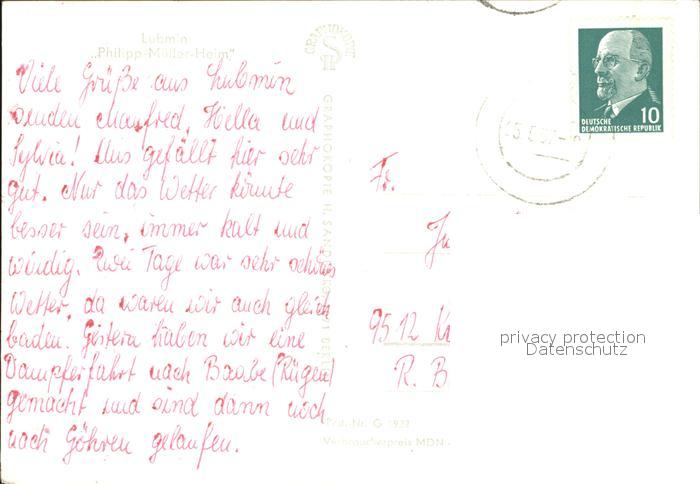 Lubmin
„Philipp-Müller-Heim"
Viele Grüße aus Lubmin
senden Manfred, Hella und
Sylvia! Uns gefällt hier sehr
gut. Nur das Wetter könnte
besser sein, immer kalt und
windig. Zwei Tage war sehr schönes
Wetter, da waren wir auch gleich
baden. Gestern haben wir eine
Dampferfahrt nach Baabe (Rügen)
gemacht und sind dann noch
nach Göhren gelaufen.
GRAPHOKOPIE H. SANDER
Best.-Nr. G 1927
Verbraucherpreis MDN
DEUTSCHE
DEMOKRATISCHE REPUBLIK
10
Fr.
9512 K
R. B
privacy protection
Datenschutz